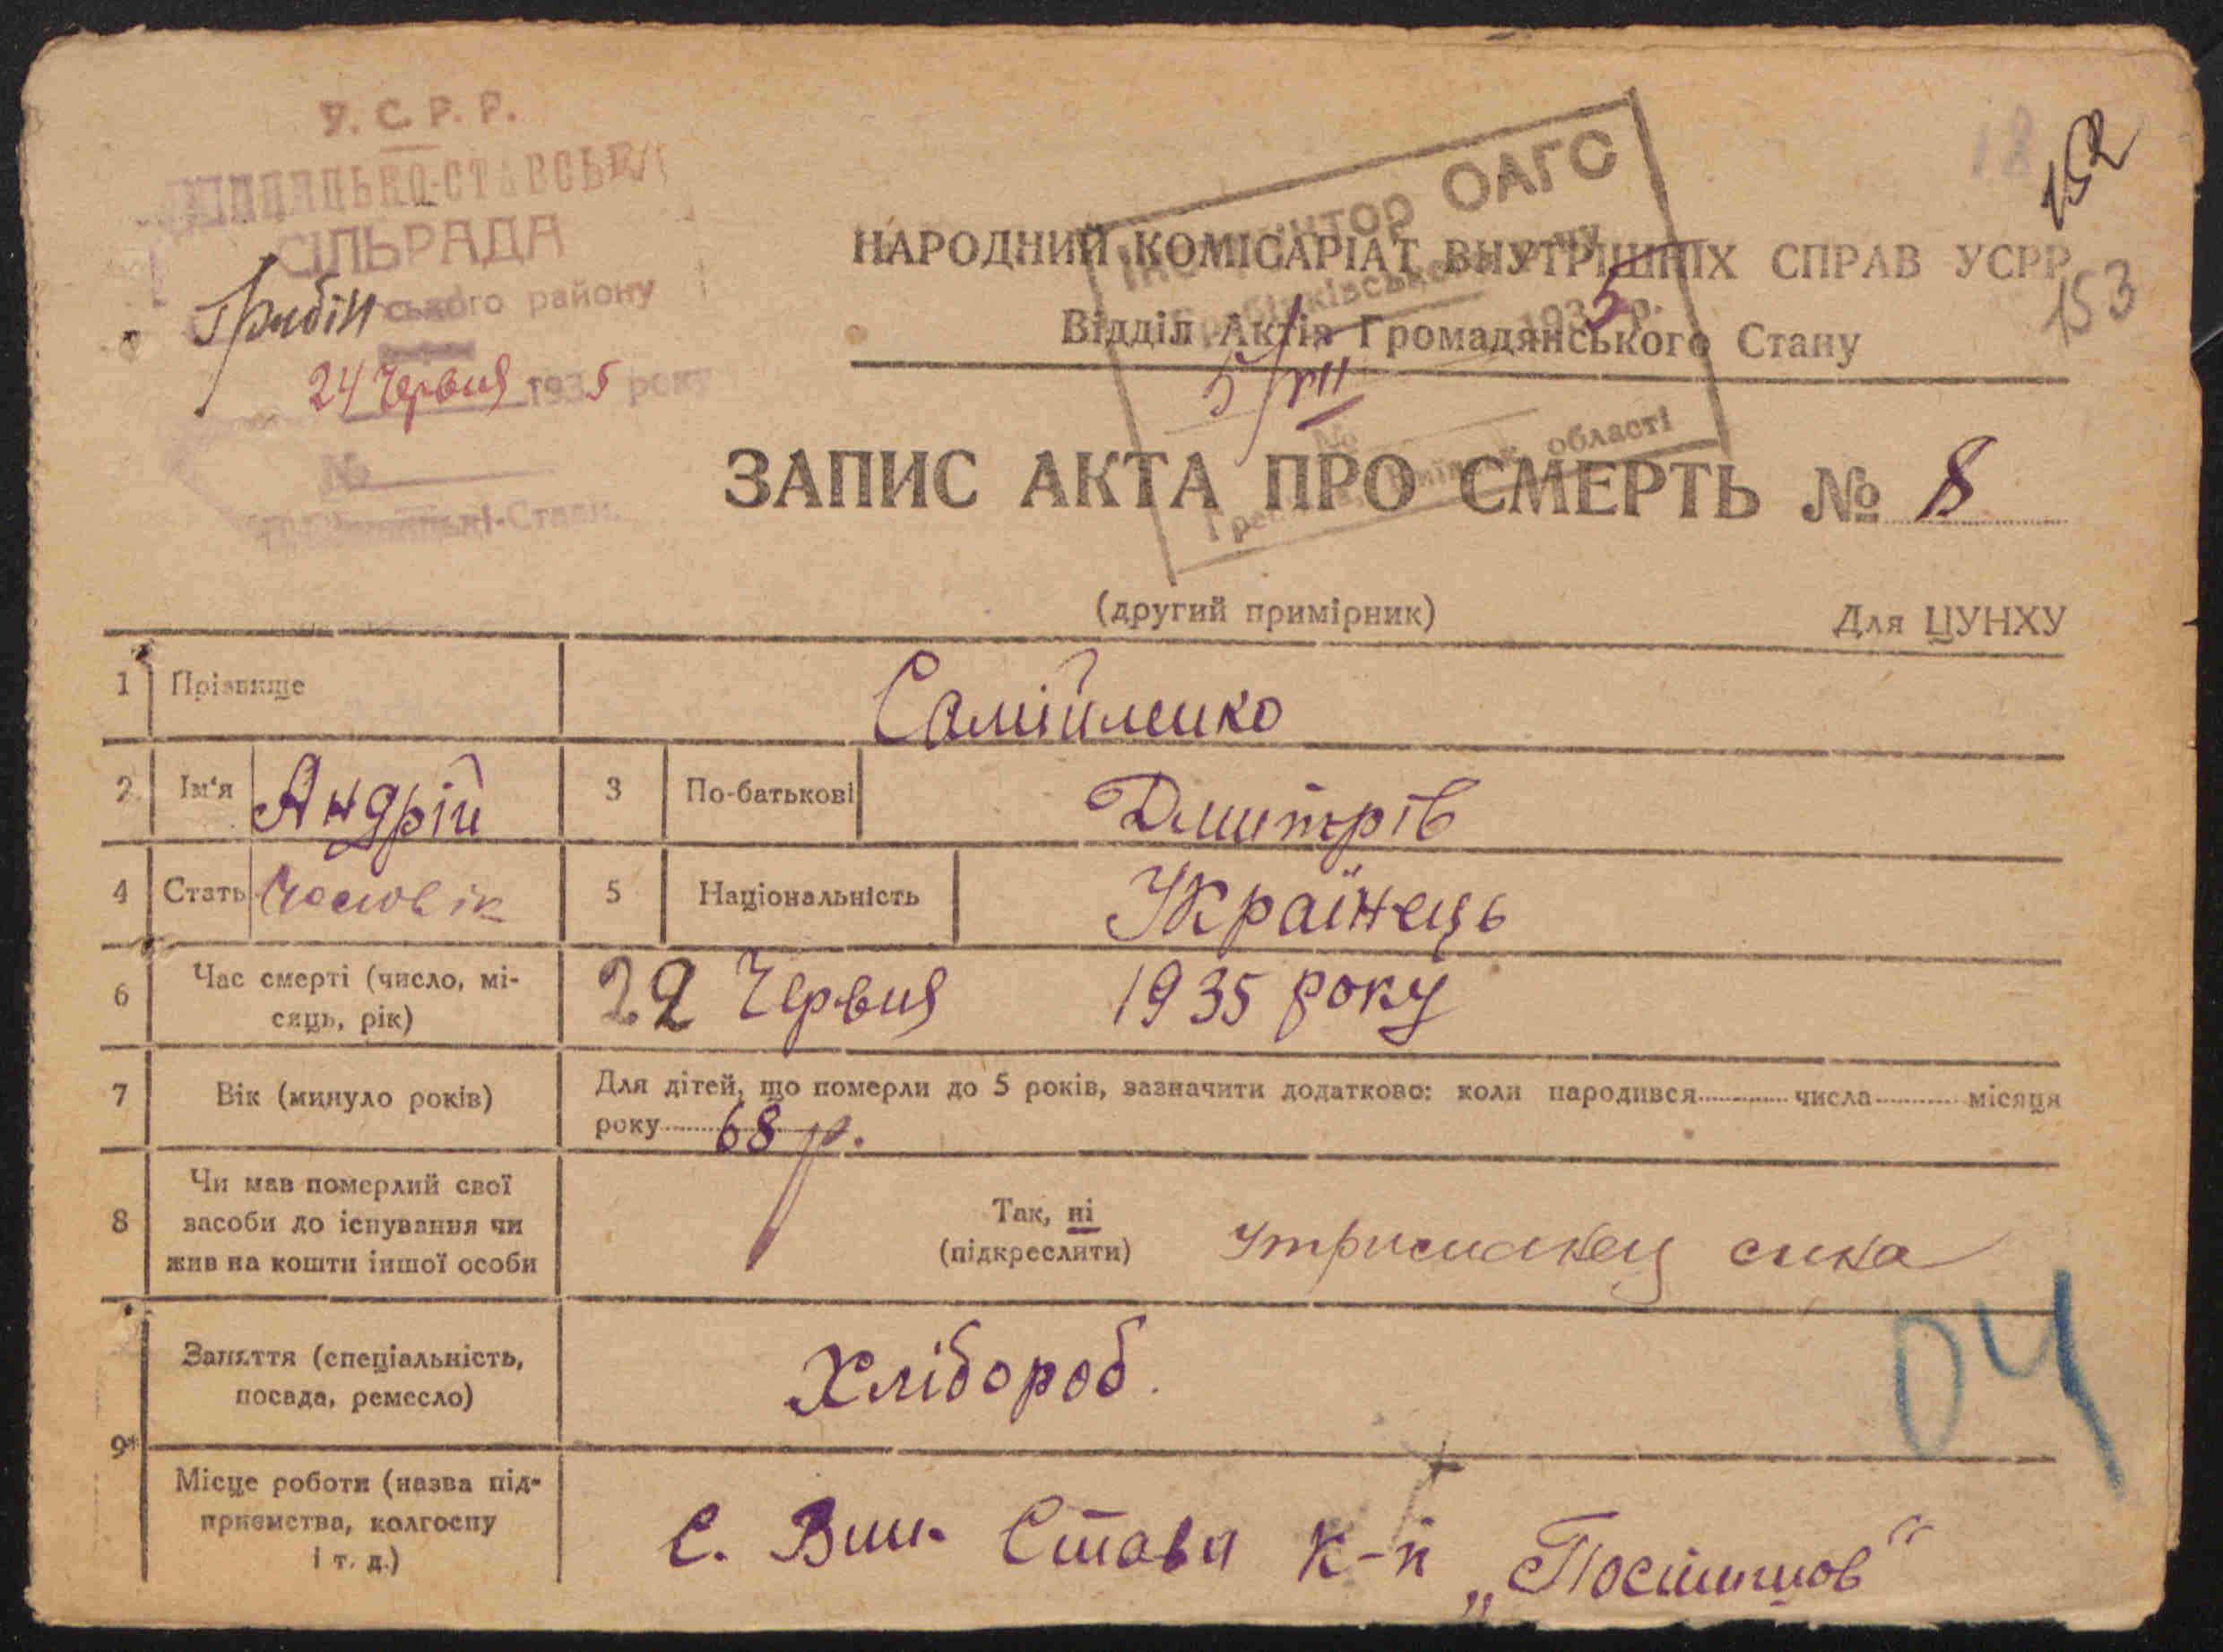 У. С. Р. Р.
СІЛЬРАДА
Грибін ського району
24 Червня 1935 року
№
18
152
153
Інспектор ОАГС
1935 р.
5/VII
№
області
НАРОДНИЙ КОМІСАРІАТ ВНУТРІШНІХ СПРАВ УСРР
Відділ Актів Громадянського Стану
ЗАПИС АКТА ПРО СМЕРТЬ № 8
(другий примірник) Для ЦУНХУ
1 Прізвище Самійленко
2 Ім'я Андрій 3 По-батькові Дмитрів
4 Стать Чоловік 5 Національність Українець
6 Час смерті (число, мі-
сяць, рік) 22 Червня 1935 року
7 Вік (минуло років) Для дітей, що померли до 5 років, зазначити додатково: коли народився числа місяця
року 68 р.
8 Чи мав померлий свої
засоби до існування чи
жив на кошти іншої особи
Так, ні
(підкреслити) Утриманец сина
9* Заняття (спеціальність,
посада, ремесло) Хлібороб.
04
Місце роботи (назва під-
приємства, колгоспу
і т. д.) С. Вин. Става к-п „Постишов"